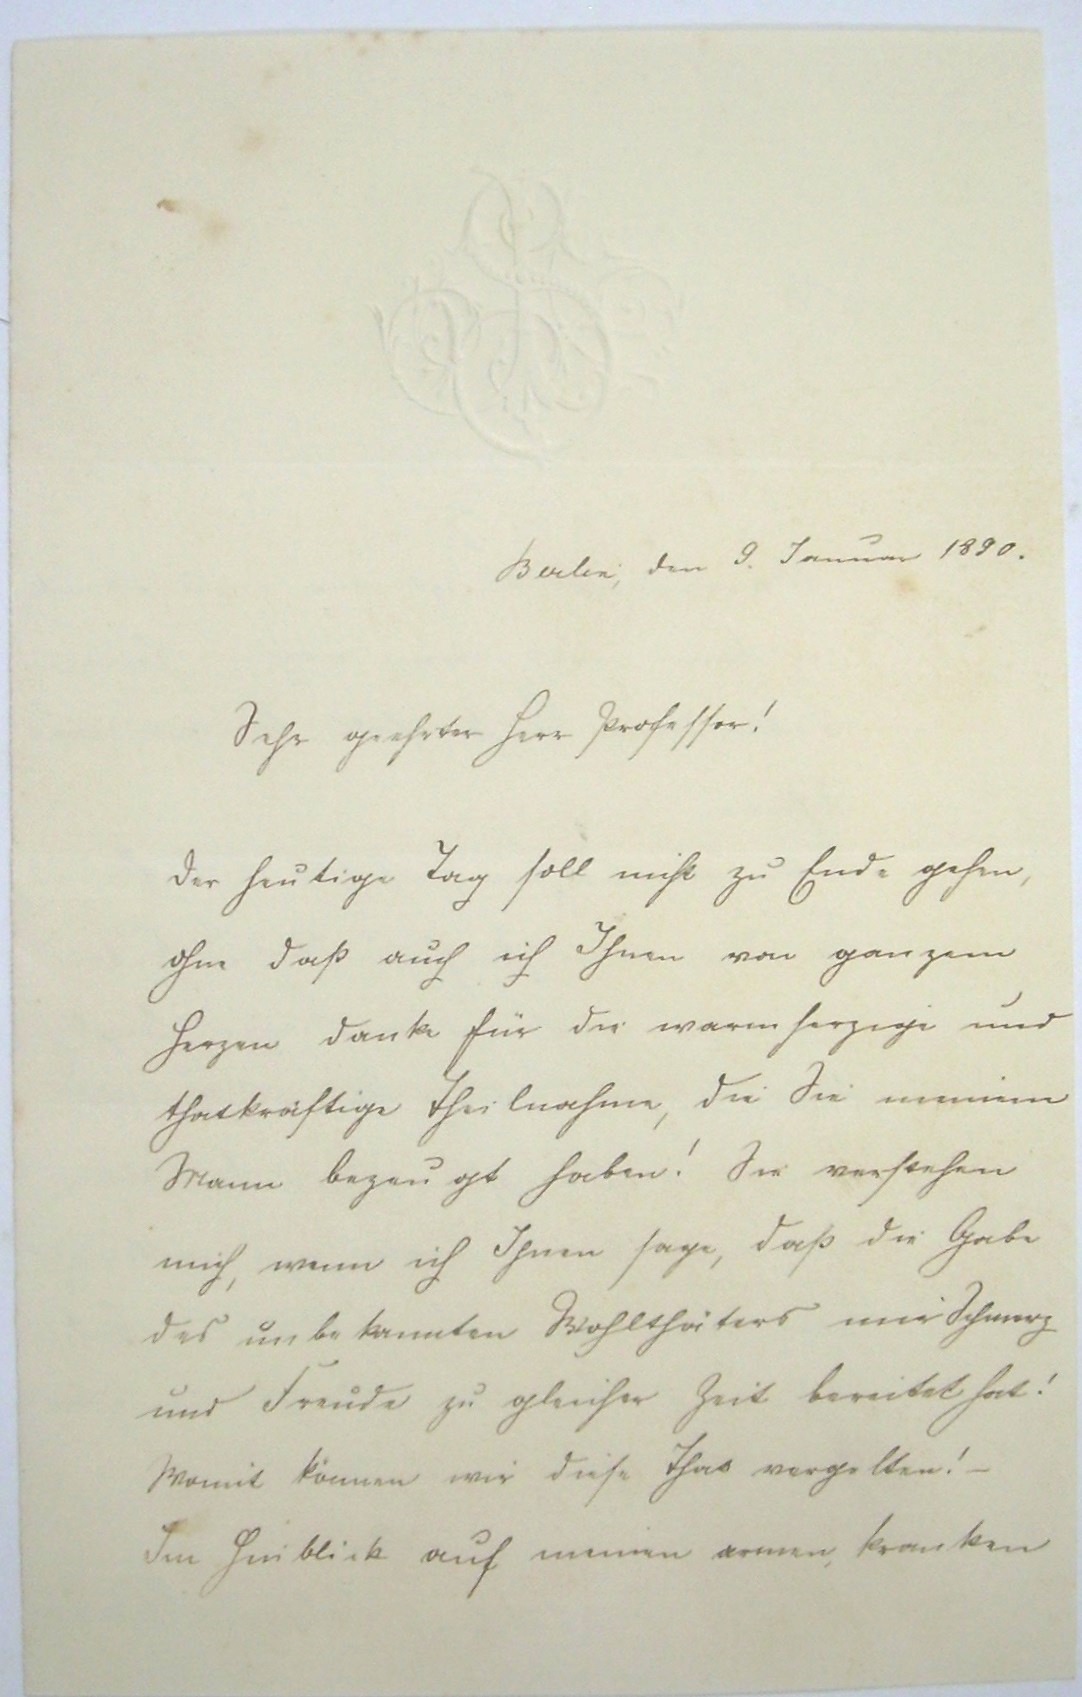 Berlin, den 9. Januar 1890.
Sehr geehrter Herr Professor!
Der heutige Tag soll nicht zu Ende gehen,
ohne daß auch ich Ihnen von ganzem
Herzen danke für die warmherzige und
thatkräftige Theilnahme, die Sie meinem
Mann bezeugt haben! Sie verstehen
mich, wenn ich Ihnen sage, daß die Gabe
des unbekannten Wohlthäters mir Schmerz
und Freude zu gleicher Zeit bereitet hat!
Womit können wir diese That vergelten! –
Im Hinblick auf meinen armen, kranken